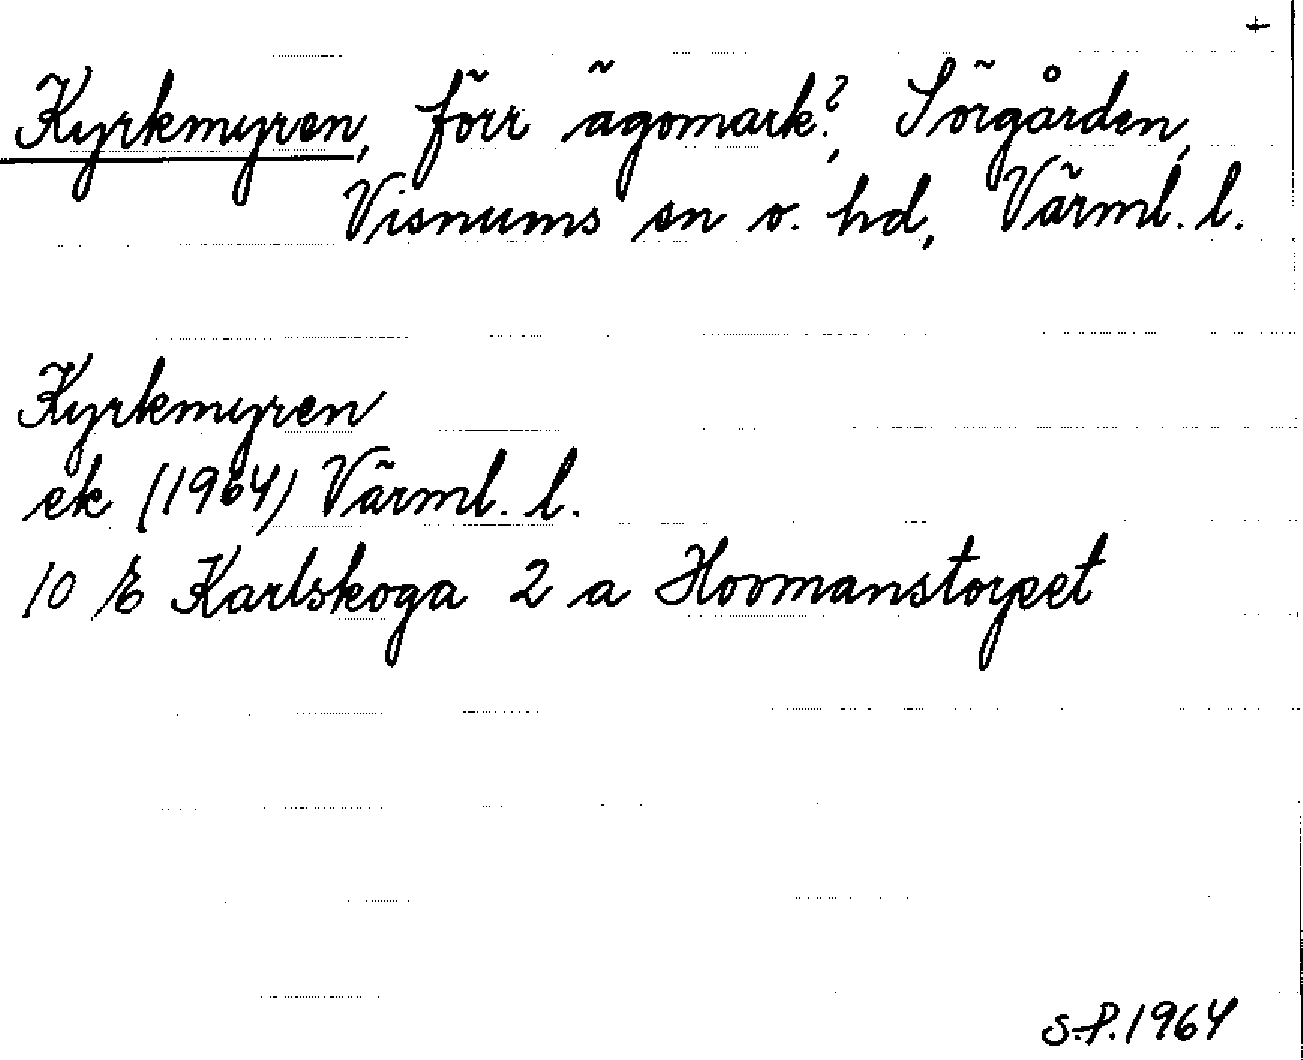 +
Kyrkmyren, förr ägomark?, Sörgården,
Visnums sn o. hd, Värml. l.
Kyrkmyren
ek (1964) Värml. l.
10 E Karlskoga 2 a Hovmanstorpet
S.P. 1964